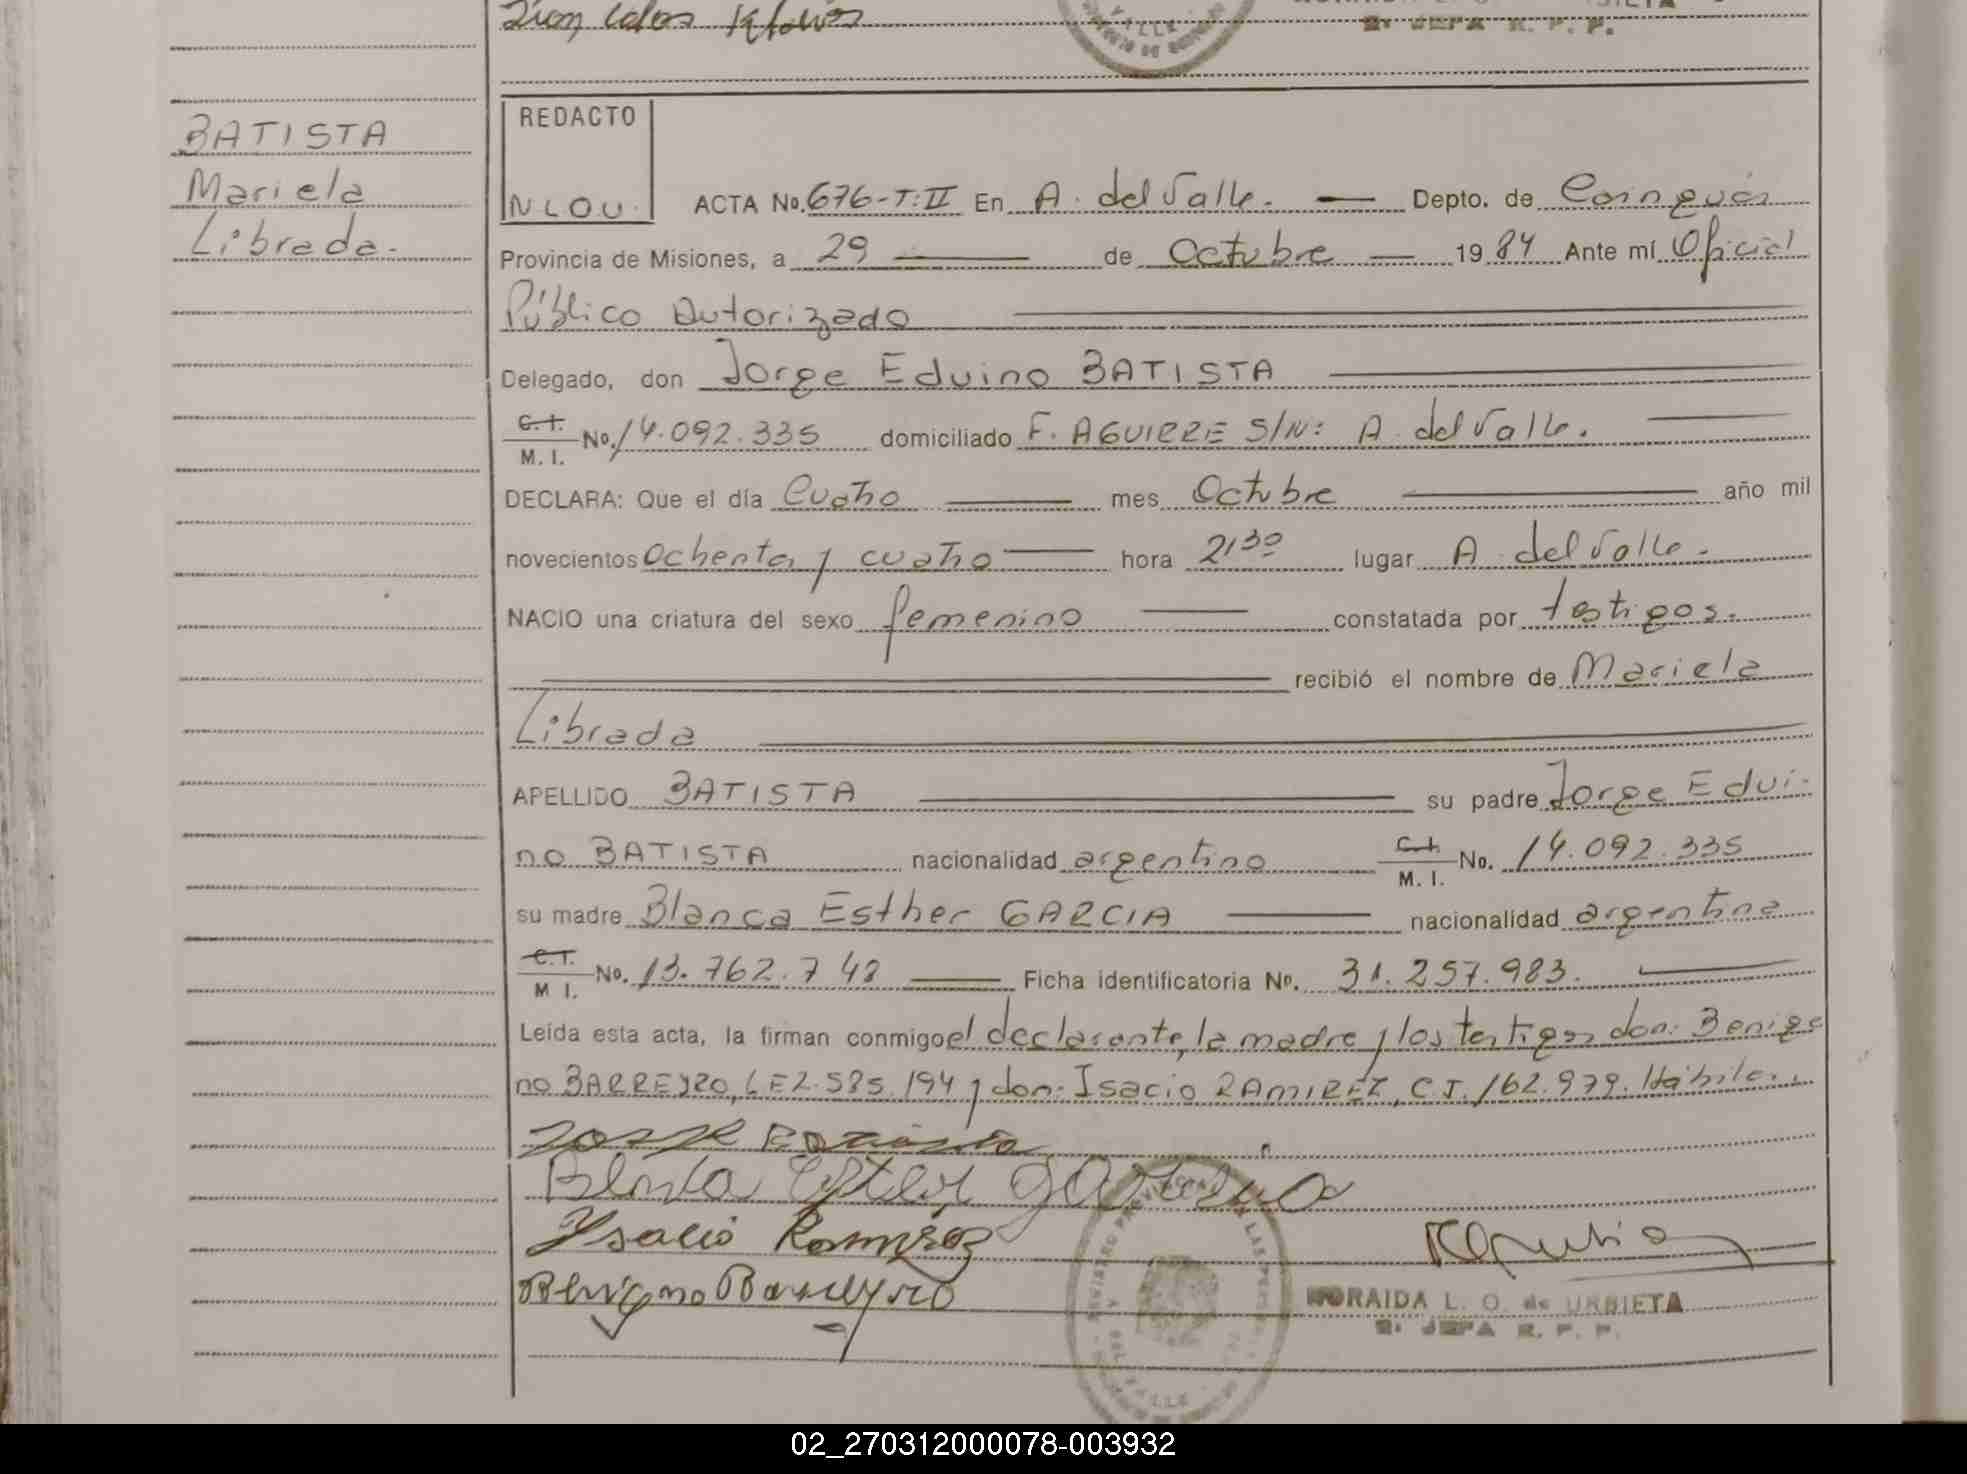 2º JEFA R. P. P.
BATISTA
Mariela
Librada.
REDACTO
NLOU.
ACTA No. 676-T:II En A. del Valle. Depto. de Cainguás
Provincia de Misiones, a 29 de Octubre 1984 Ante mí Oficial
Público Autorizado
Delegado, don Jorge Eduino BATISTA
C.I. M. I. No. 14.092.335 domiciliado F. AGUIRRE S/N: A. del Valle.
DECLARA: Que el día Cuatro mes Octubre año mil
novecientos Ochenta y cuatro hora 21³⁰ lugar A. del Valle.
NACIO una criatura del sexo femenino constatada por testigos.
recibió el nombre de Mariela
Librada
APELLIDO BATISTA su padre Jorge Edui-
no BATISTA nacionalidad argentino C.I. M. I. No. 14.092.335
su madre Blanca Esther GARCIA nacionalidad argentina
C.I. M I. No. 13.762.748 Ficha identificatoria No. 31.257.983.
Leída esta acta, la firman conmigo el declarante, la madre y los testigos don: Benig
no BARREYRO, LE 2.585.194 y don: Isacio RAMIREZ, C.I. 162.979. Hábiles.
Ysacio Ramirez
Benigno Barreyro
NORAIDA L. O. de URBIETA
2º JEFA R. P. P.
02_270312000078-003932